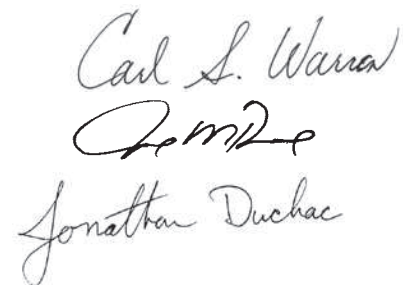 Carl S. Warren
Jonathan Duchac